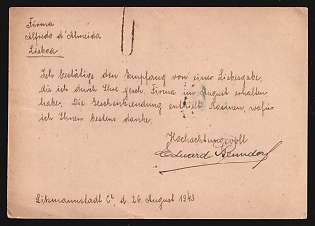 Firma
Alfredo d'Almeida
Lisboa
Ich bestätige den Empfang von einer Liebesgabe,
die ich durch Ihre gesch. Firma im August erhalten
habe. Die Geschenksendung enthielt Rosinen, wofür
ich Ihnen bestens danke.
Hochachtungsvoll
Eduard
Litzmannstadt d. 26. August 1943